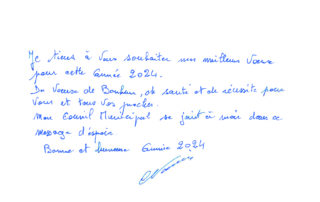 Je tiens à vous souhaiter mes meilleurs Vœux
pour cette Année 2024.
Des Vœux de Bonheur, de santé et de réussite pour
Vous et tous vos proches.
Mon Conseil Municipal se joint à moi dans ce
message d'espoir.
Bonne et heureuse Année 2024